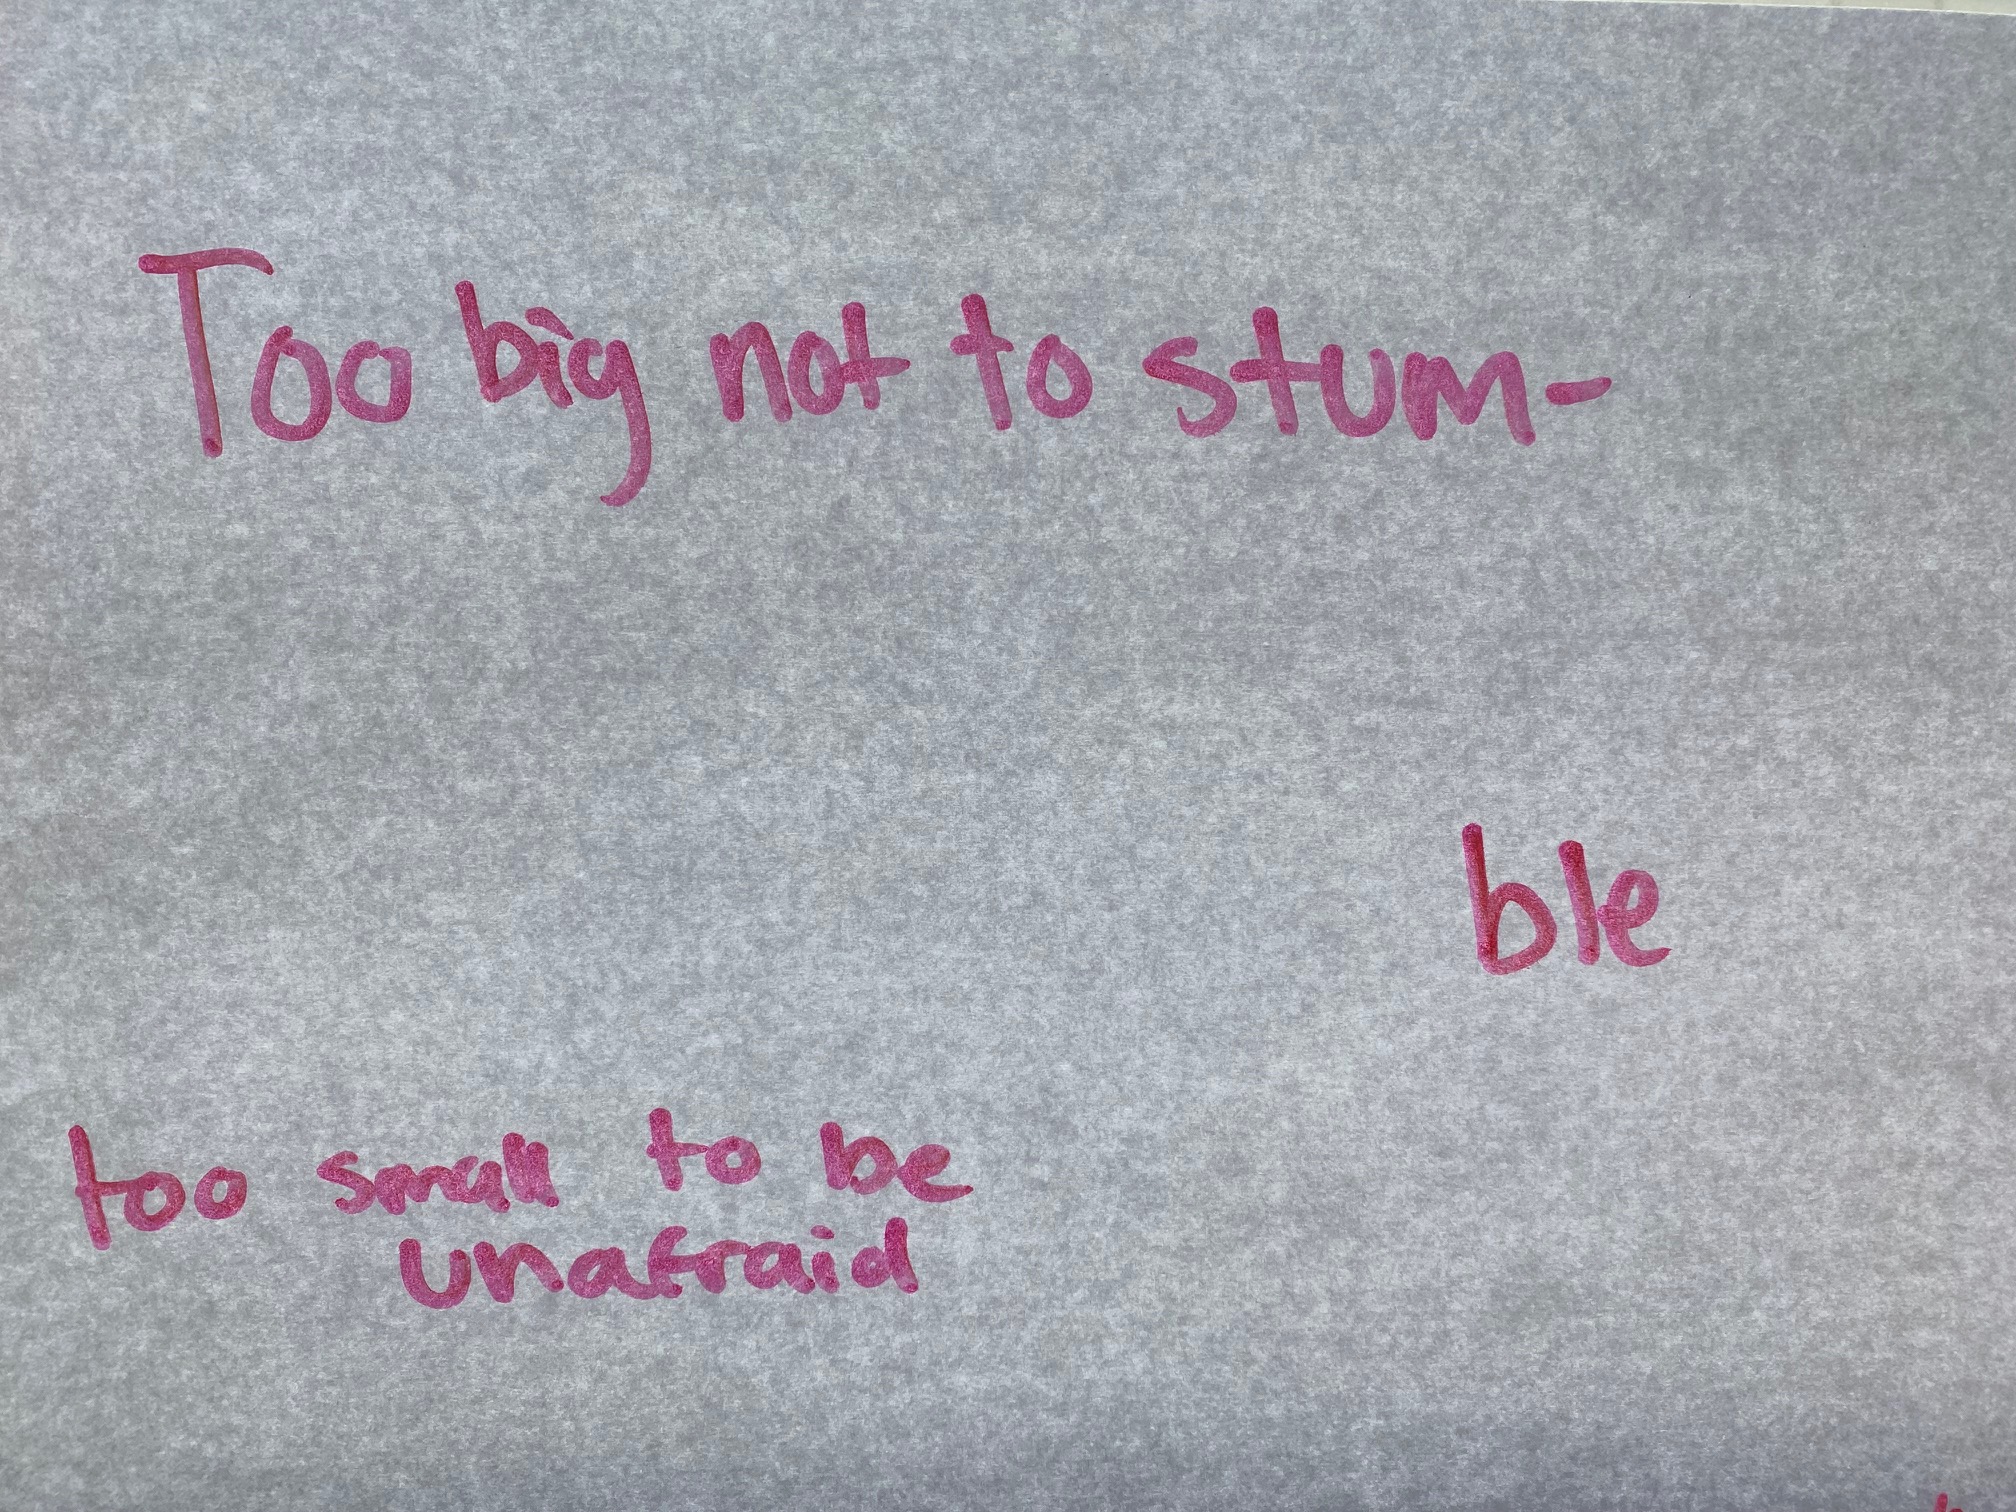 Too big not to stum-
ble
too small to be
unafraid